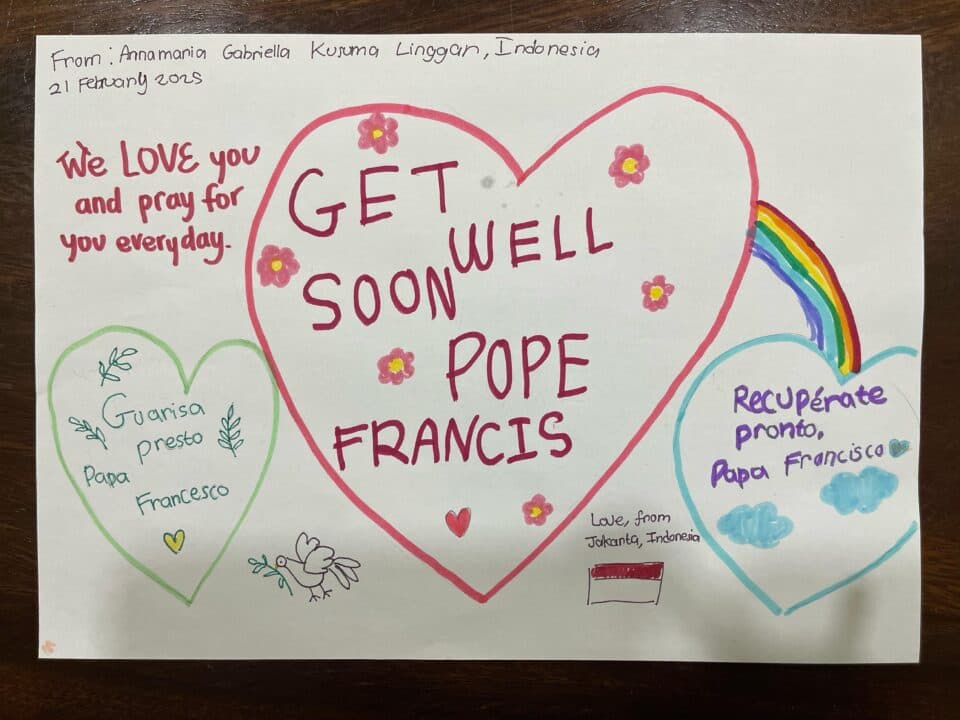 From: Annamaria Gabriella Kusuma Linggar, Indonesia
21 February 2025
We LOVE you
and pray for
you everyday.
GET
WELL
SOON
POPE
FRANCIS
Guarisa
presto
Papa
Francesco
Love, from
Jakarta, Indonesia
Recupérate
pronto,
Papa Francisco